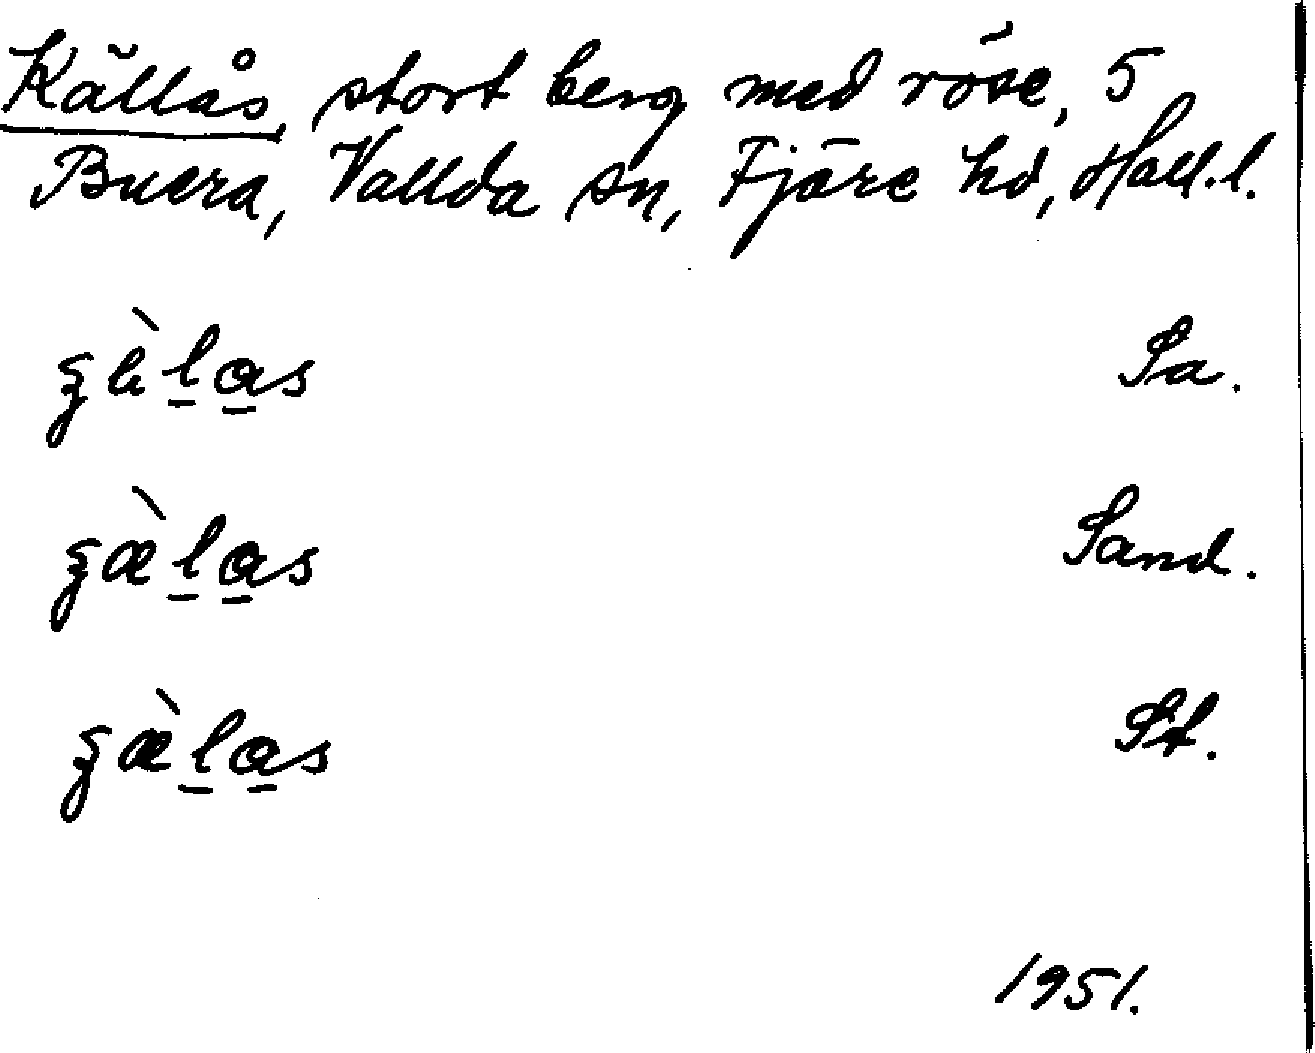 Källås, stort berg med röse, 5
Buera, Vallda sn, Fjäre hd, Hall.l.
Sa.
ʒæ̀l̲a̲s Sand.
ʒæ̀l̲a̲s St.
1951.